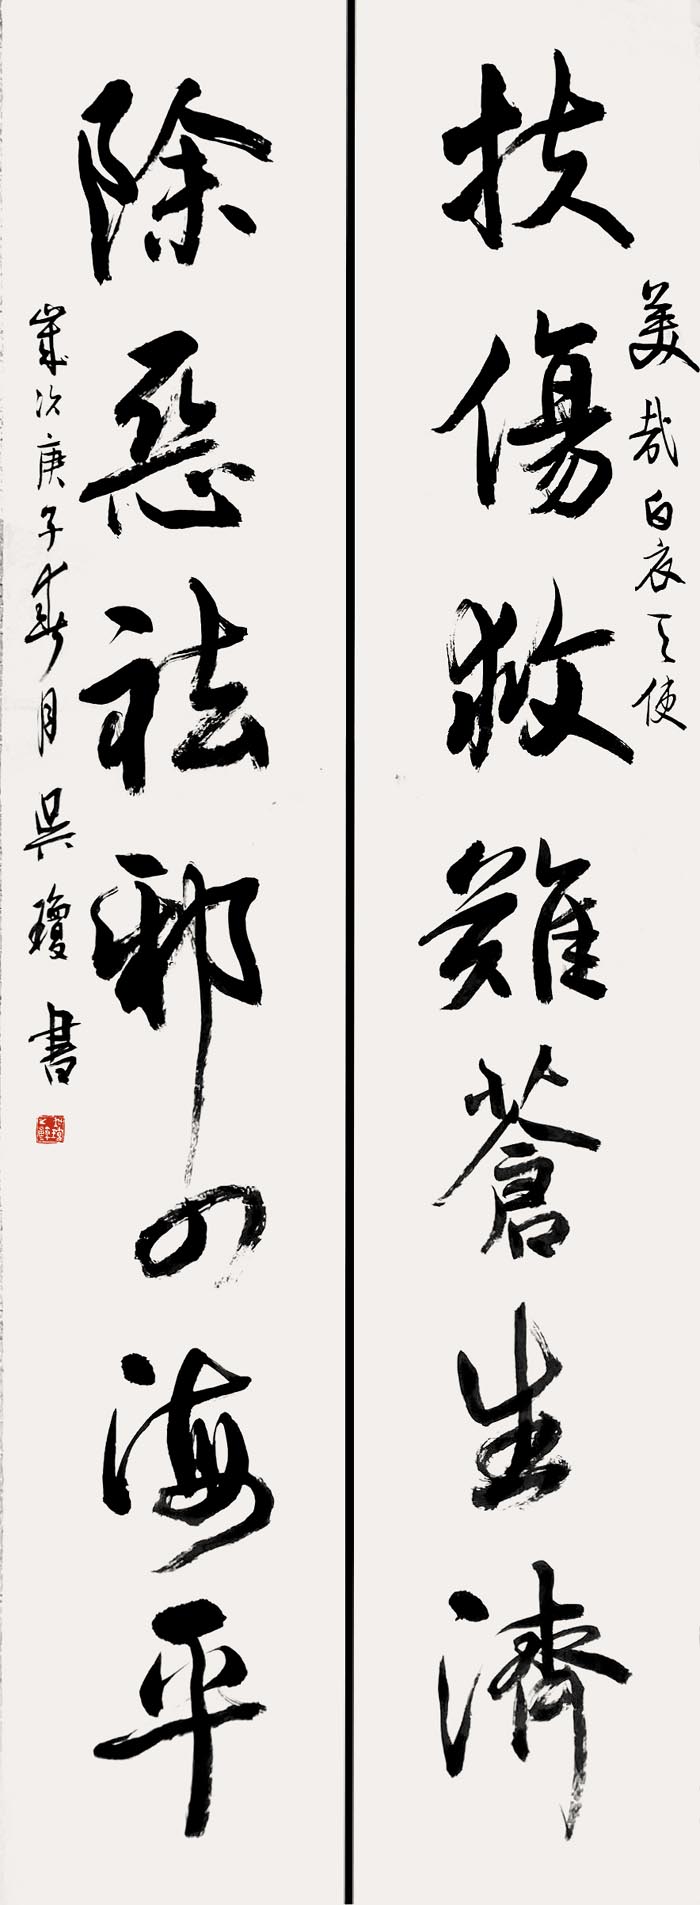 美哉白衣天使
扶傷救難蒼生濟
除惡祛邪四海平
歲次庚子春月吳瓊書